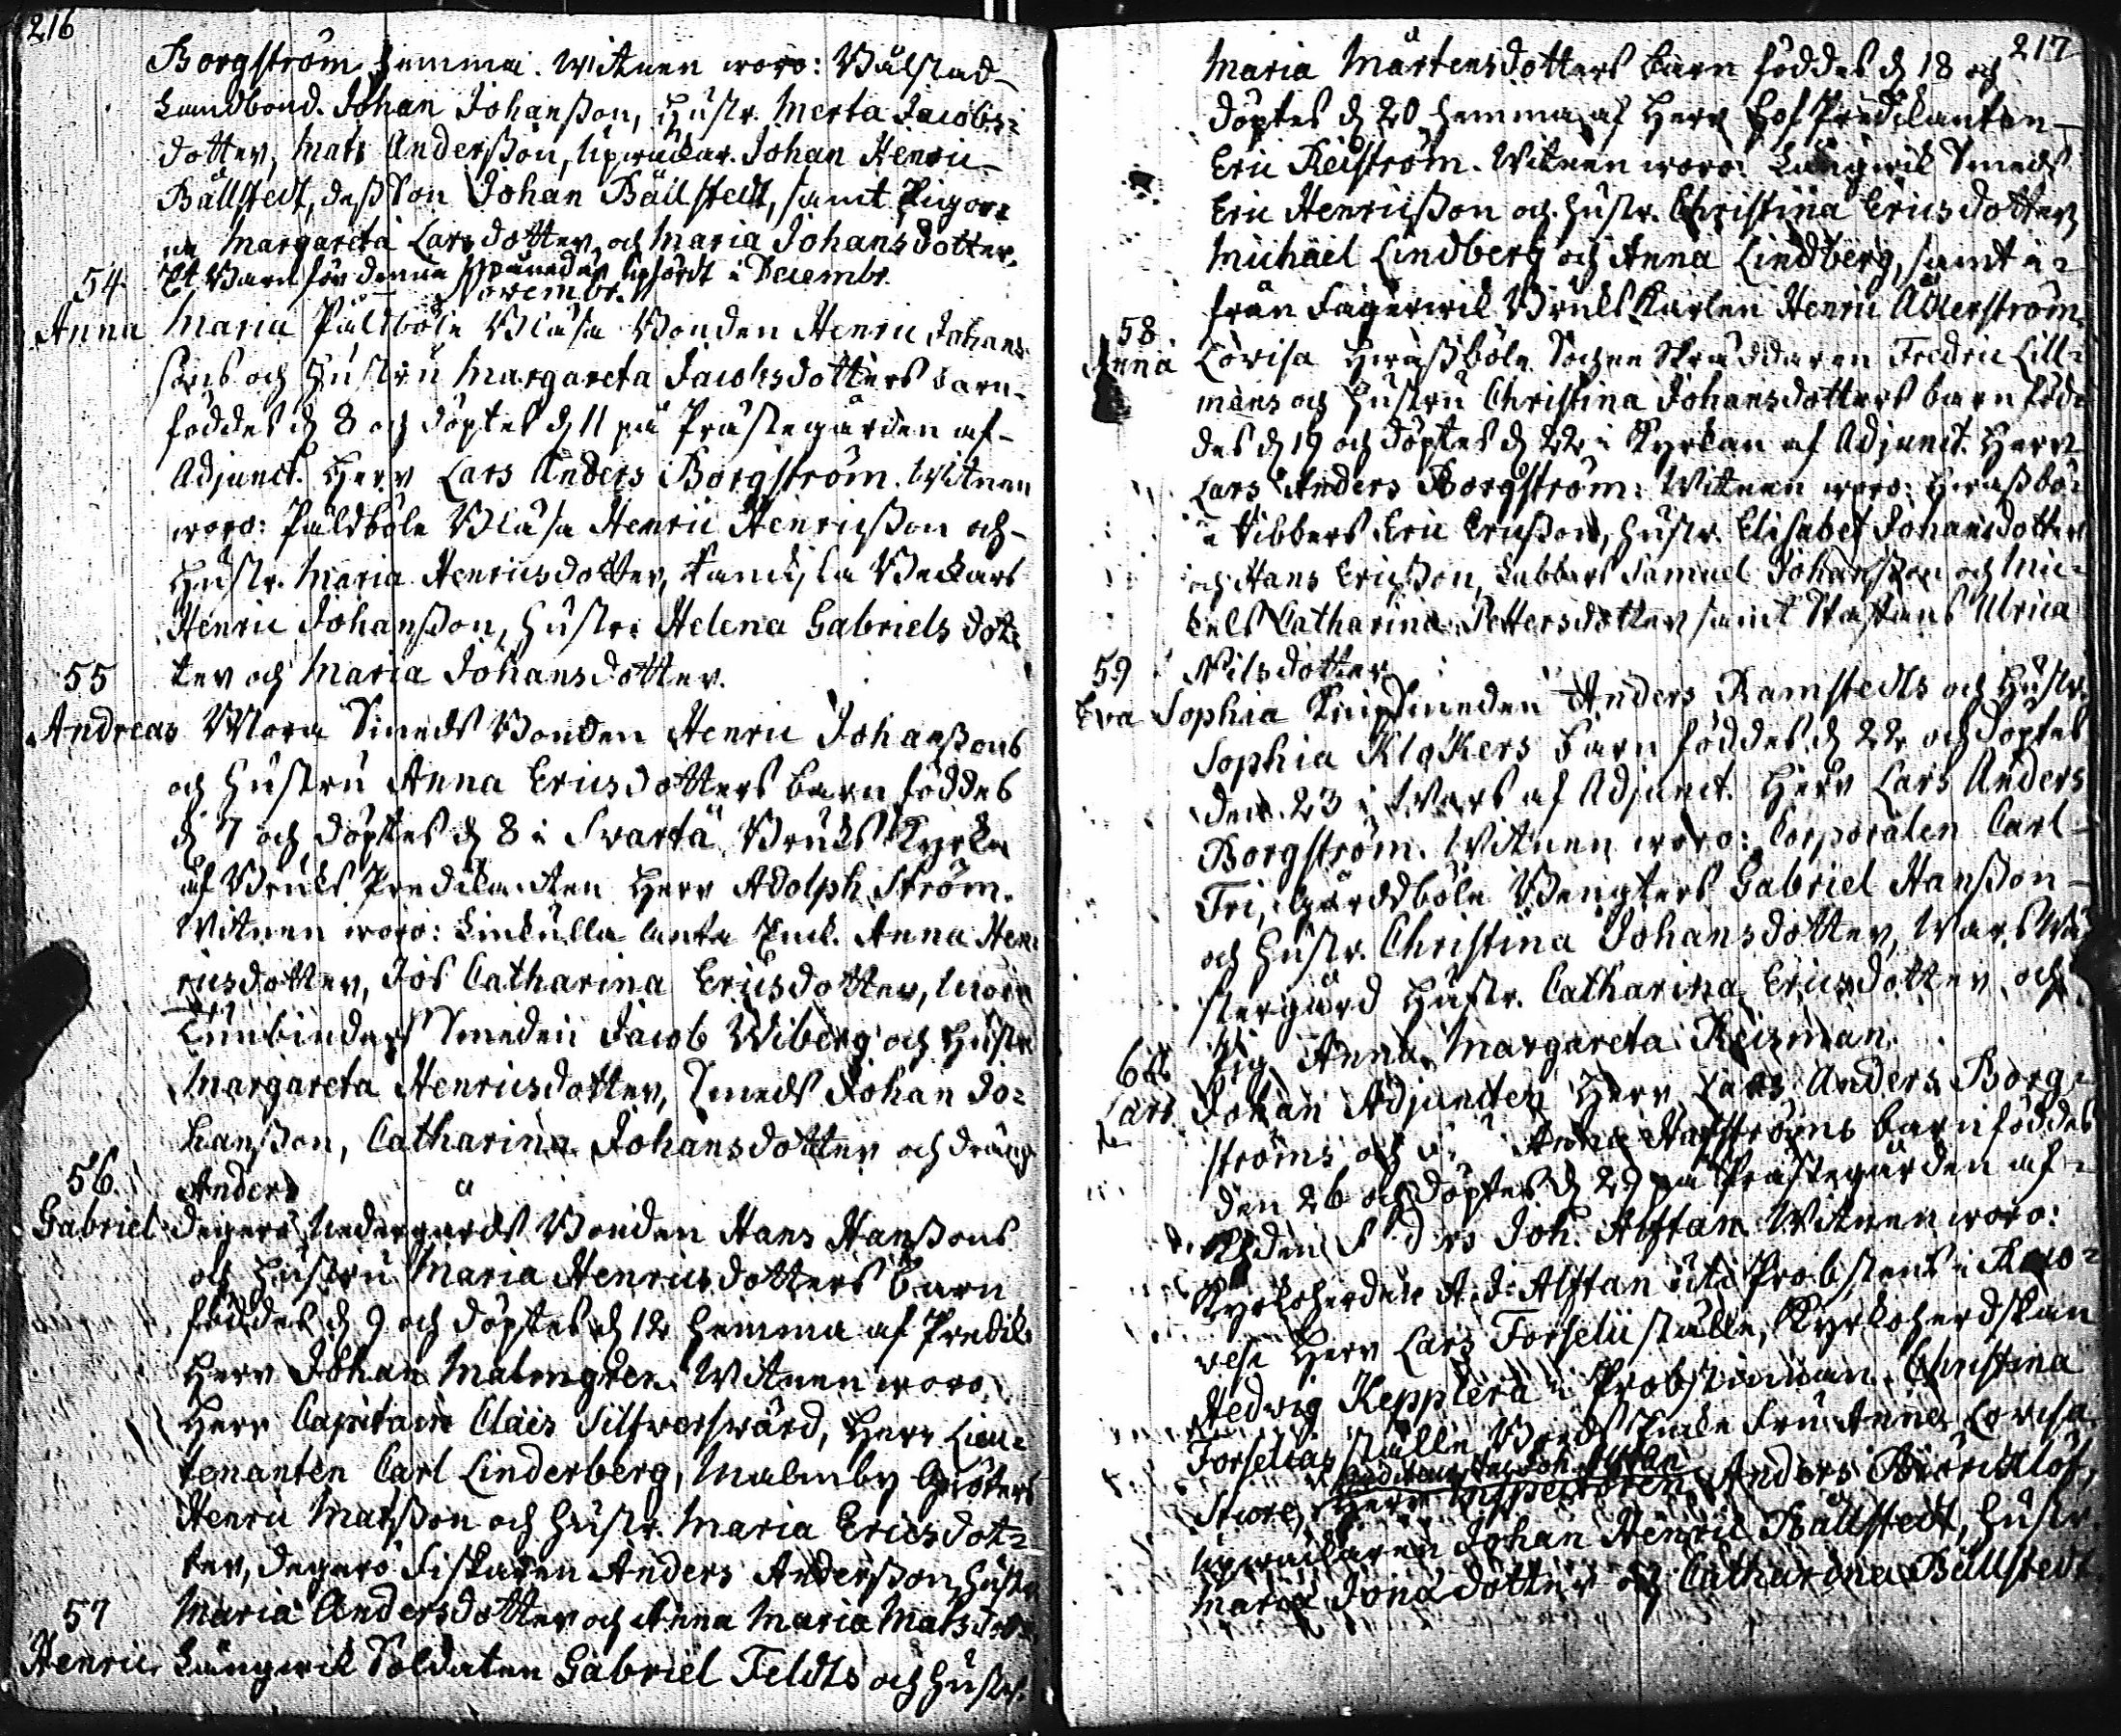 216
Borgström hemma. Witnen woro: Bålstad
Landbond. Johan Johanßon, Hustr. Merta Jacobs-
dotter, Mats Anderßon, Upwaktar. Johan Henric
Bällstedt, deß Son Johan Bällstedt, samt Pigor-
na Margareta Larsdotter och Maria Johansdotter.
Et Barn för denne Månaden upfördt i Decembr.
Novembr.
54.
Anna Maria Påldböle Blåsa Bonden Henric Johans-
sons och Hustru Margareta Jacobsdotters barn
föddes d. 8 och döptes d. 11 på Prästegården af
Adjunct. Herr Lars Anders Borgström. Witnen
woro: Påldböle Blåsa Henric Henricßon och
Hustr. Maria Henricsdotter, Backars
Henric Johanßon, Hustr. Helena Gabriels dot-
ter och Maria Johansdotter.
55
Andreas Mora Smeds Bonden Henric Johanßons
och Hustru Anna Ericsdotters barn föddes
d. 7 och döptes d. 8 i Svartå Bruks Kyrka
af Bruks Predikanten Herr Adolph Ström.
Witnen woro: Linkulla Enk. Anna Hen-
ricsdotter, Jös Catharina Ericsdotter,
Smeden Jacob Wiberg och Hustr.
Margareta Henricsdotter, Smeds Johan Jo-
hanßon, Catharina Johansdotter och dräng
Anders
56.
Gabriel Degerö Nedergårds Bonden Hans Hanßons
och Hustru Maria Henricsdotters barn
föddes d. 9 och döptes d. 12 hemma af Predik.
Herr Johan Malmgren. Witnen woro
Herr Capitain Claës Silfversvärd, Herr Lieu-
tenanten Carl Linderberg, Malmby Gröters
Henric Matsßon och Hustr. Maria Ericsdot-
ter, Degerö Fiskaren Anders Anderßon, Hustr.
Maria Andersdotter och Anna Maria Matsdott.
57
Henric Långwik Soldaten Gabriel Feldts och Hustr.
217
Maria Mårtensdotters barn föddes d. 18 och
döptes d. 20 hemma af Herr Hof Predikanten
Eric Reiström. Witnen woro: Långwik Smeds
Eric Henricßon och Hustr. Christina Ericsdotter,
Michaël Lindberg och Anna Lindberg, samt
från Fagerwik Bruks Karlen Henric Alderström.
58
Anna Lovisa Hwaßböle Sochne Skräddaren Fredric Lill-
mans och Hustru Christina Johansdotters barn föd-
des d. 19 och döptes d. 22 i Kyrkan af Adjunct. Herr
Lars Anders Borgström: Witnen woro: Hwaßbö-
le Kibbers Eric Ericßon, Hustr. Elisabet Johansdotter
och Hans Ericßon, Labbars Samuel Johanßon och Mic-
kels Catharina Pettersdotter samt Staffans Ulrica
Nilsdotter.
59
Eva Sophia Knipsmeden Anders Ramstedts och Hustr.
Sophia Klockers barn föddes d. 22 och döptes
den 23 i Wars af Adjunct. Herr Lars Anders
Borgström. Witnen woro: Corporalen Carl
Fri, Gårdböle Bengters Gabriel Hanßon
och Hustr. Christina Johansdotter, Wars Wä-
stergård Hustr. Catharina Ericsdotter och
Pig. Anna Margareta Reisman.
60
Lars Johan Adjuncten Herr Lars Anders Borg-
ströms och Anna Hafströms barn föddes
den 26 och döptes d. 29 på Prästegården af
Joh. Alftan. Witnen woro:
Kyrkoherden A. J. Alftan uti Probstens i
Herr Lars Forselii ställe, Kyrkoherdskan
Hedwig Kepplera i Probstinnan Christina
Forselias ställe, Enka Fru Anna Lovisa
Joh. Alftan
Sture, Herr Inspectoren Anders Björklöf,
Upwaktaren Johan Henric Bällstedt, Hustr.
Maria Jonædotter och Catharina Bällstedt